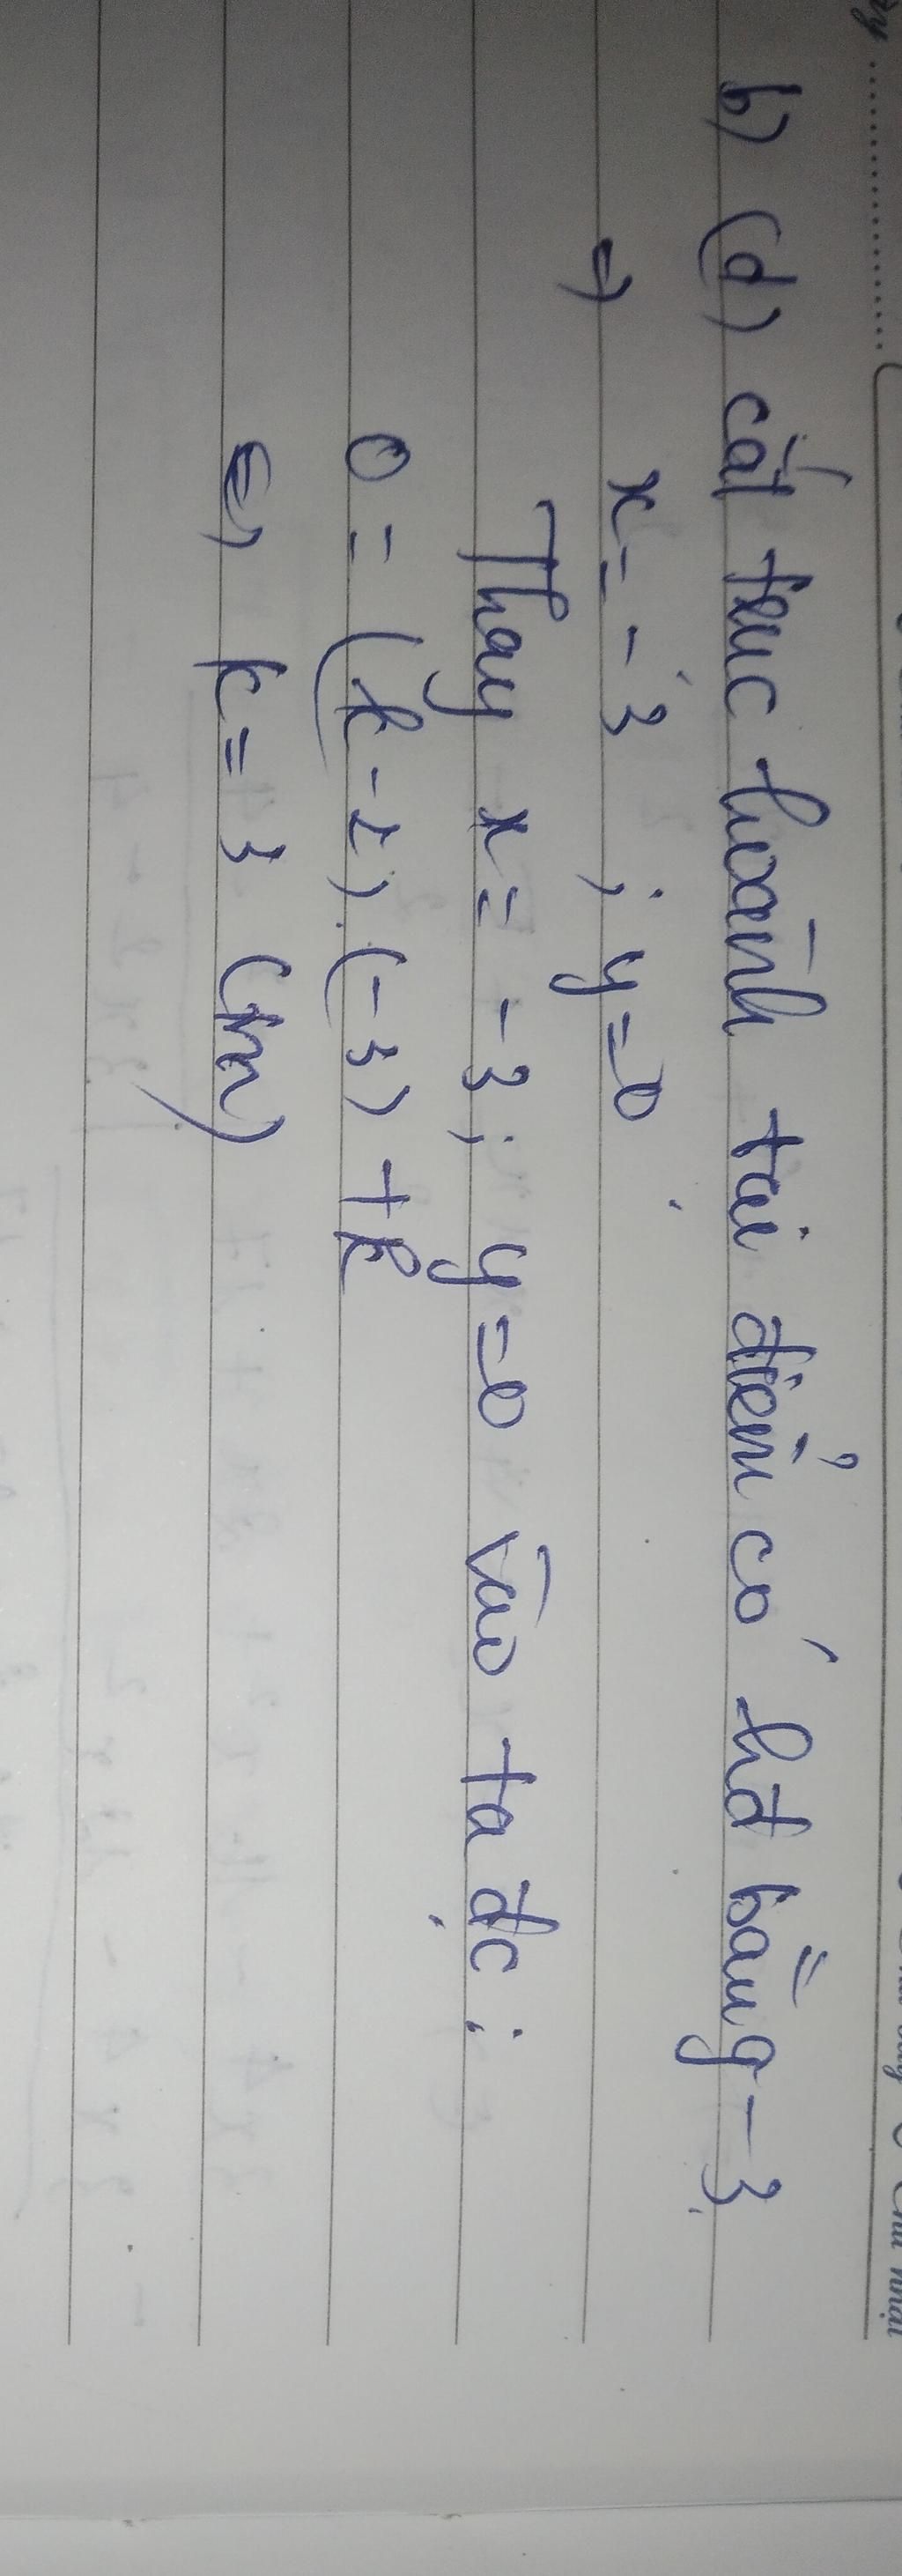 b) (d) cắt trục hoành tại điểm có hđ bằng -3
=) x = -3 ; y = 0
Thay x = -3 ; y = 0 vào ta đc :
0 = (k - 2) . (-3) + k
<=> k = 3 (tm)